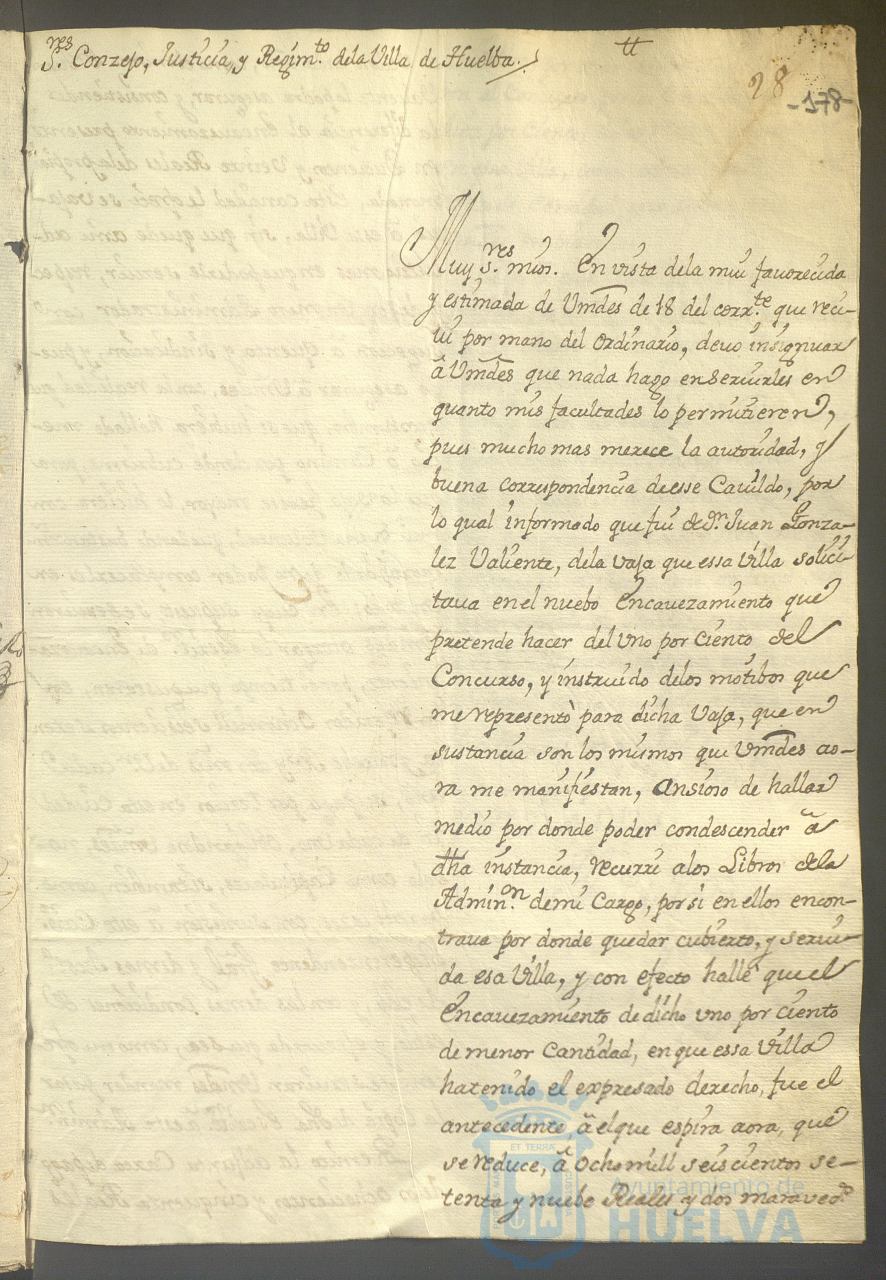 S.res Conzejo, Justicia, y Regim.to dela Villa de Huelba.
tt
28
-178-
Muy S.res mios. En vista dela mui favorecida
y estimada de Vm̃des de 18 del corr.te que reci-
vi por mano del ordinario, devo insignuar
â Vm̃des que nada hago en servirles en
quanto mis facultades lo permitieren,
pues mucho mas merece la autoridad, y
buena correspondencia de esse Cavildo, por
lo qual informado que fui de D.n Juan Gonza-
lez Valiente, dela vaja que essa Villa solici-
tava en el nuebo Encavezamiento que
pretende hacer del Uno por Ciento del
Concurso, y instruido delos motibos que
me representò para dicha Vaja, que en
sustancia son los mismos que Vm̃des ao-
ra me manifiestan, ansioso de hallar
medio por donde poder condescender â
dha instancia, recurri alos Libros dela
Admin.on demi Cargo, por si en ellos encon-
trava por donde quedar cubierto, y servi-
da esa Villa, y con efecto hallè que el
Encavezamiento de dicho uno por ciento
de menor Cantidad, en que essa Villa
hatenido el expresado derecho, fue el
antecedente â el que espira aora, que
se reduce, â Ocho mill seiscientos se-
tenta y nuebe Reales y dos maraved.s
ET TERRÆ
Ayuntamiento de
HUELVA